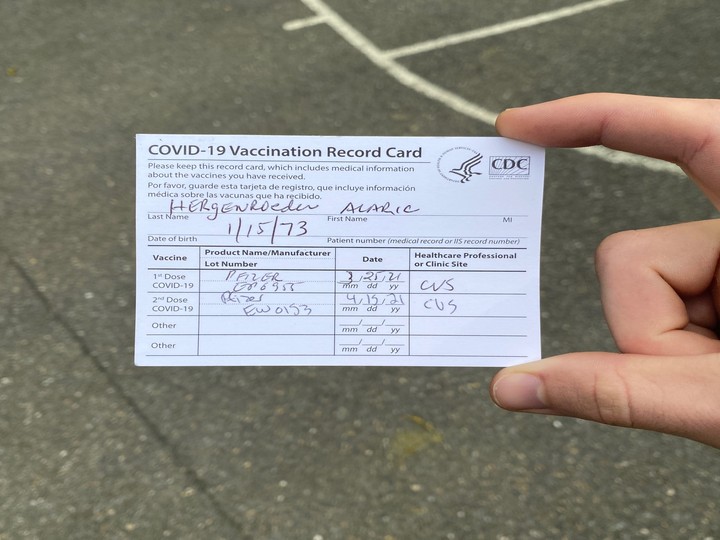 COVID-19 Vaccination Record Card
CDC
Please keep this record card, which includes medical information
about the vaccines you have received.
Por favor, guarde esta tarjeta de registro, que incluye información
médica sobre las vacunas que ha recibido.
HERgENROeden ALARIC
Last Name First Name MI
1/15/73
Date of birth Patient number (medical record or IIS record number)
Vaccine Product Name/Manufacturer Date Healthcare Professional
Lot Number or Clinic Site
1st Dose PFIZER 3/25/21 CVS
COVID-19 mm dd yy
2nd Dose 4/15/21 CVS
COVID-19 EW0153 mm dd yy
Other
mm dd yy
Other
mm dd yy